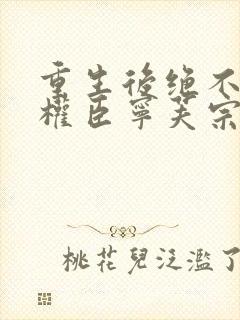 重生後絕不
權臣寧芙宗
桃花兒泛濫了